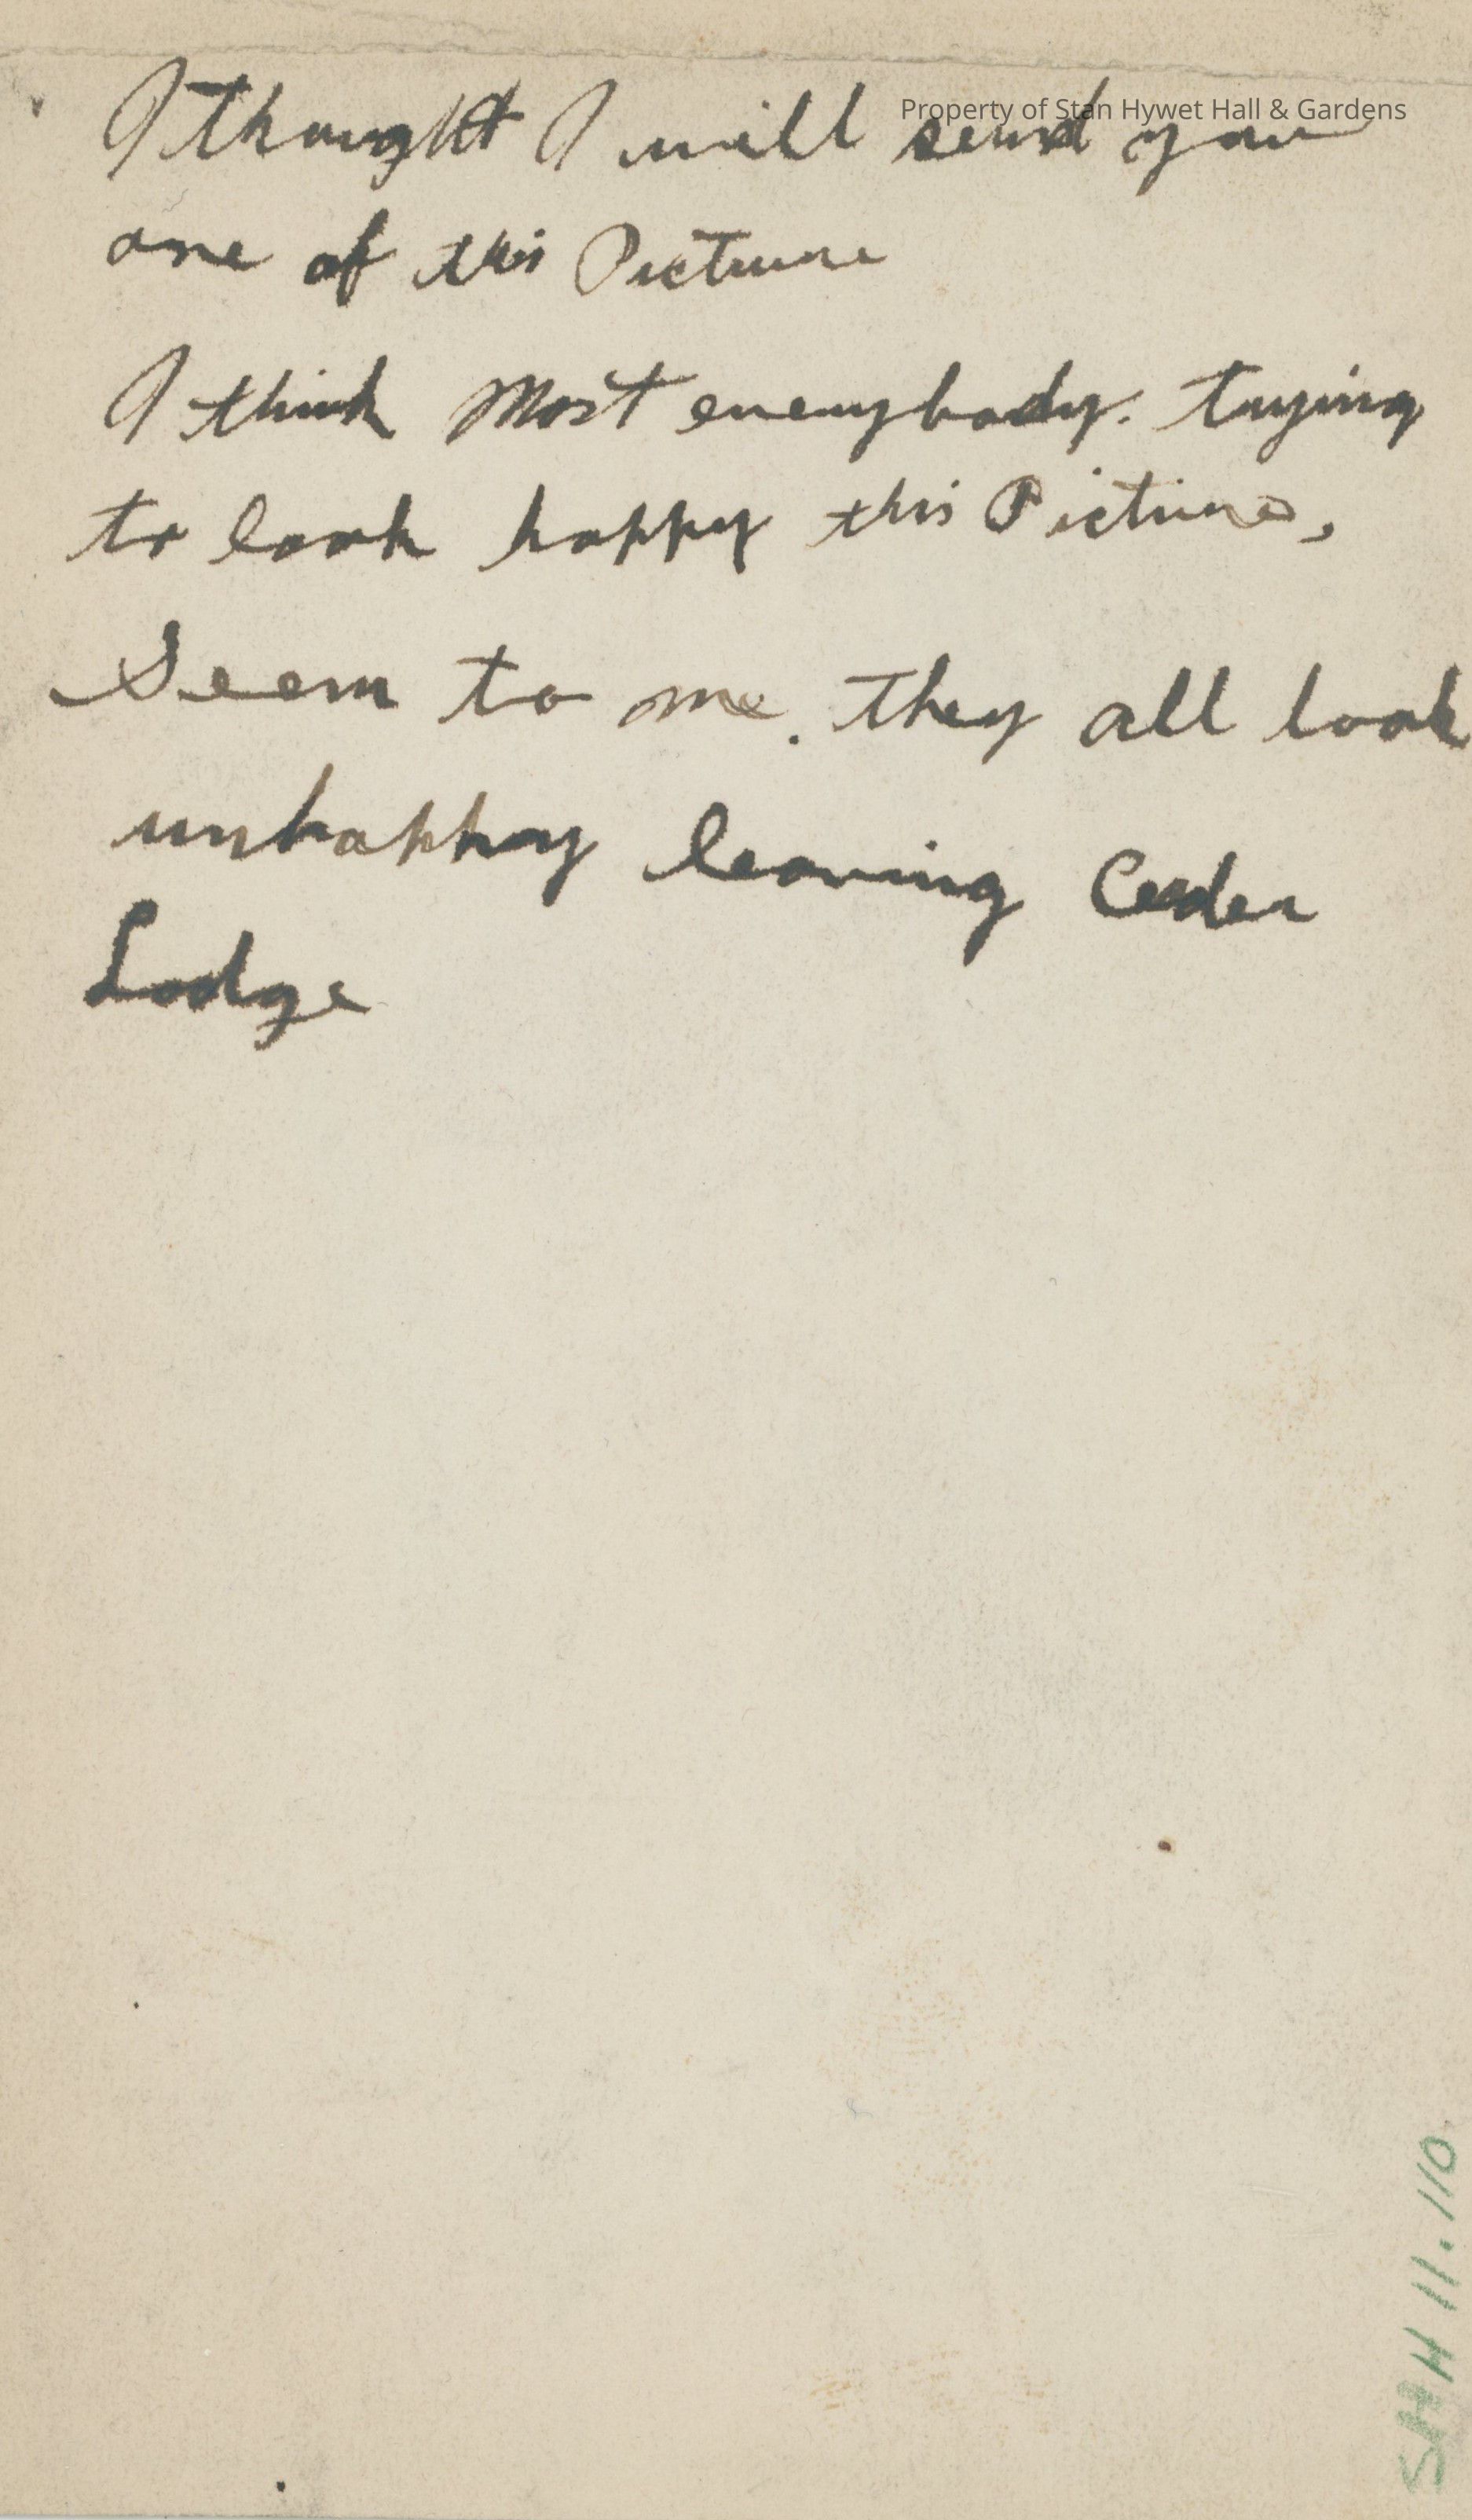 Property of Stan Hywet Hall & Gardens
I thought I will send you
one of this Picture
I think Most everybody. trying
to look happy this Picture,
Seem to me. They all look
unhappy leaving Ceder
Lodge
SHH 11.110